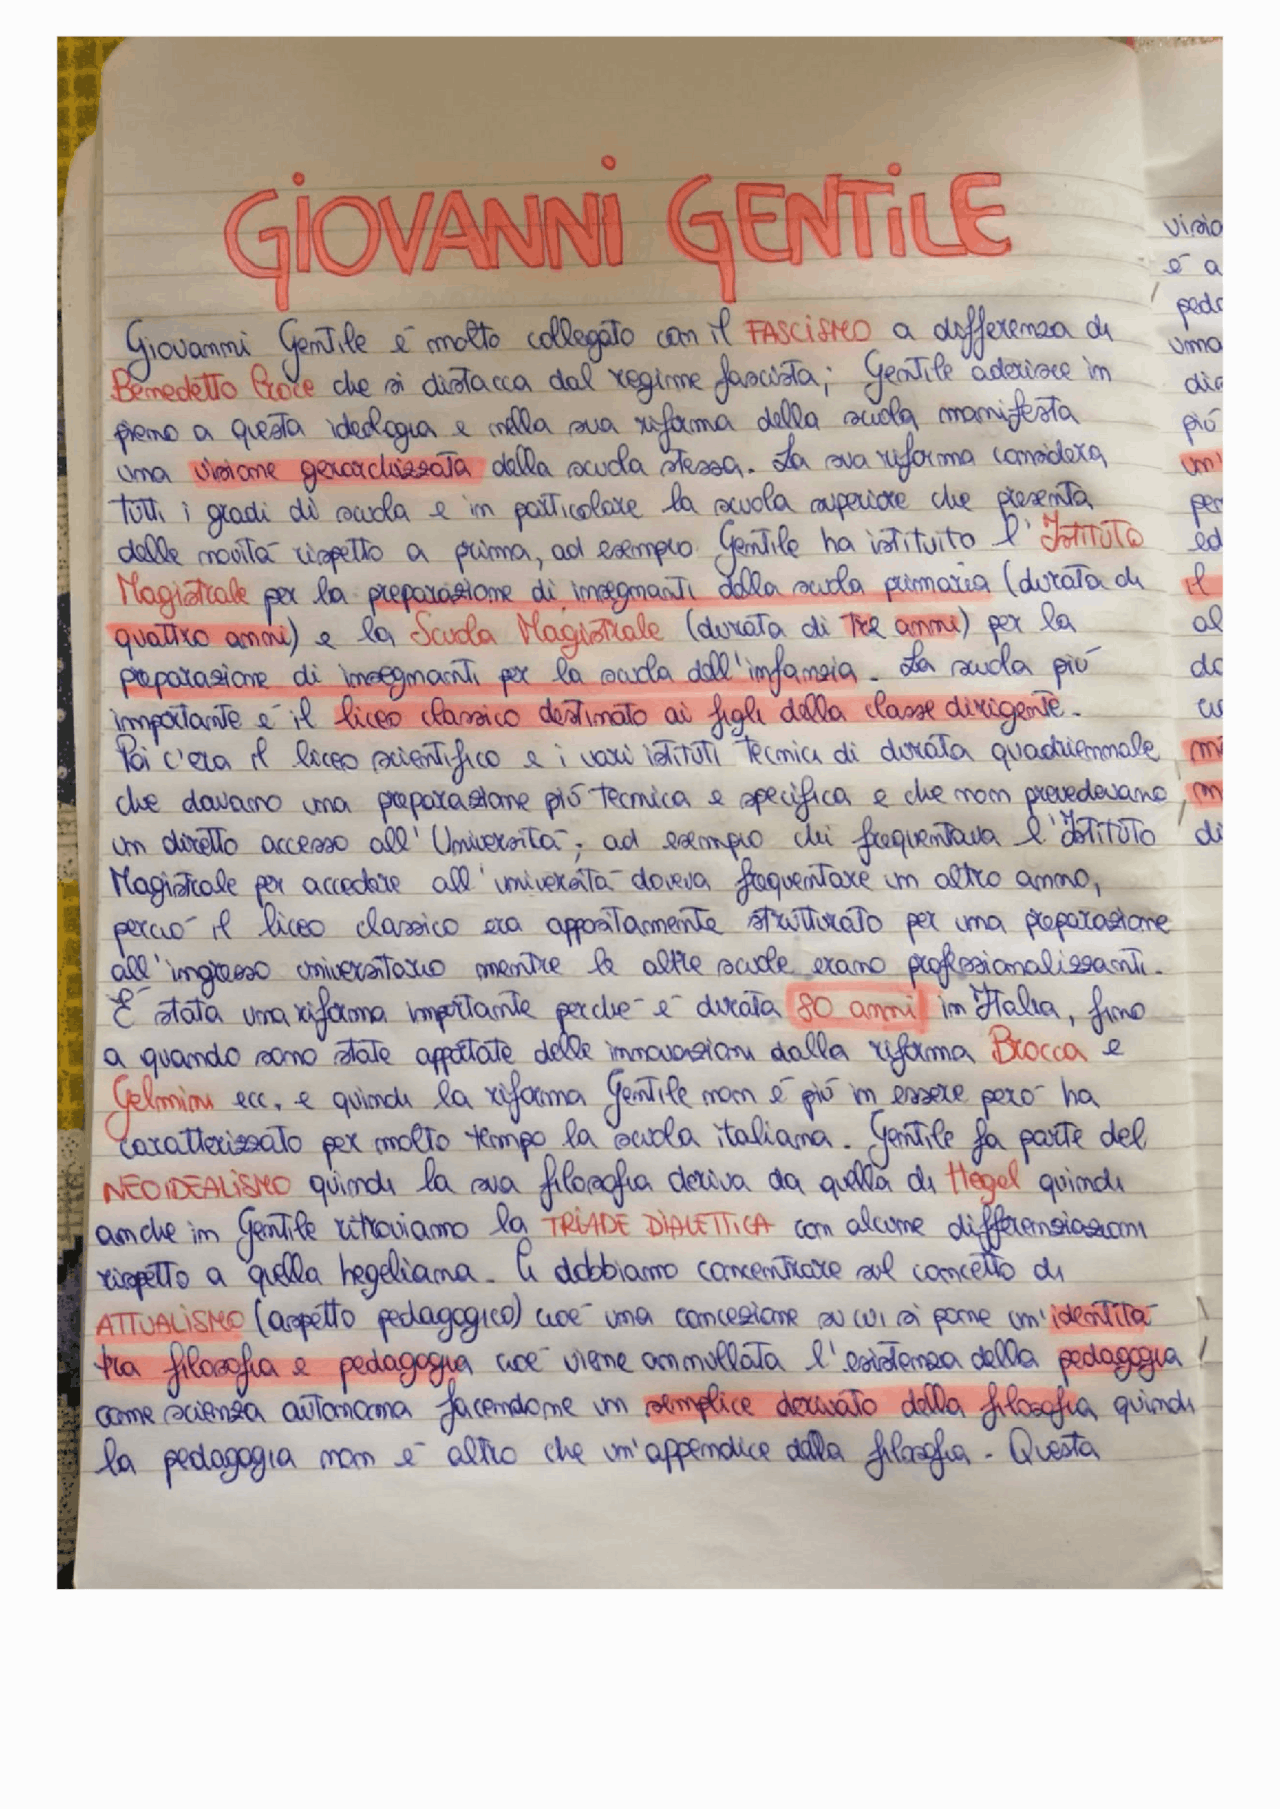 GIOVANNI GENTILE
Giovanni Gentile è molto collegato con il FASCISMO a differenza di
Benedetto Croce che si distacca dal regime fascista; Gentile aderisce in
pieno a questa ideologia e nella sua riforma della scuola manifesta
una visione gerarchizzata della scuola stessa. La sua riforma considera
tutti i gradi di scuola e in particolare la scuola superiore che presenta
delle novità rispetto a prima, ad esempio Gentile ha istituito l'Istituto
Magistrale per la preparazione di insegnanti della scuola primaria (durata di
quattro anni) e la Scuola Magistrale (durata di tre anni) per la
preparazione di insegnanti per la scuola dell'infanzia. La scuola più
importante è il liceo classico destinato ai figli della classe dirigente.
Poi c'era il liceo scientifico e i vari istituti tecnici di durata quadriennale
che davano una preparazione più tecnica e specifica e che non prevedevano
un diretto accesso all'Università; ad esempio chi frequentava l'Istituto
Magistrale per accedere all'università doveva frequentare un altro anno,
perciò il liceo classico era appositamente strutturato per una preparazione
all'ingresso universitario mentre le altre scuole erano professionalizzanti.
È stata una riforma importante perché è durata 80 anni in Italia, fino
a quando sono state apportate delle innovazioni dalla riforma Brocca e
Gelmini ecc. e quindi la riforma Gentile non è più in essere però ha
caratterizzato per molto tempo la scuola italiana. Gentile fa parte del
NEOIDEALISMO quindi la sua filosofia deriva da quella di Hegel quindi
anche in Gentile ritroviamo la TRIADE DIALETTICA con alcune differenziazioni
rispetto a quella hegeliana. Ci dobbiamo concentrare sul concetto di
ATTUALISMO (aspetto pedagogico) cioè una concezione su cui si pone un'identità
tra filosofia e pedagogia cioè viene annullata l'esistenza della pedagogia
come scienza autonoma facendone un semplice derivato della filosofia quindi
la pedagogia non è altro che un'appendice della filosofia. Questa